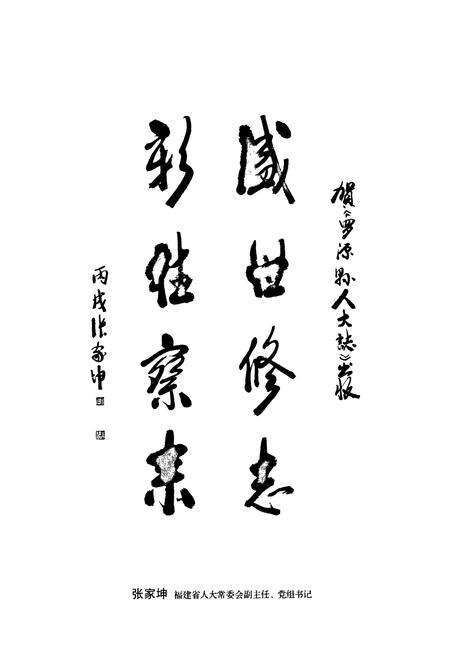 賀《罗源縣人大誌》出版
盛世修志
彰往察来
丙戌张家坤
张家坤 福建省人大常委会副主任、党组书记